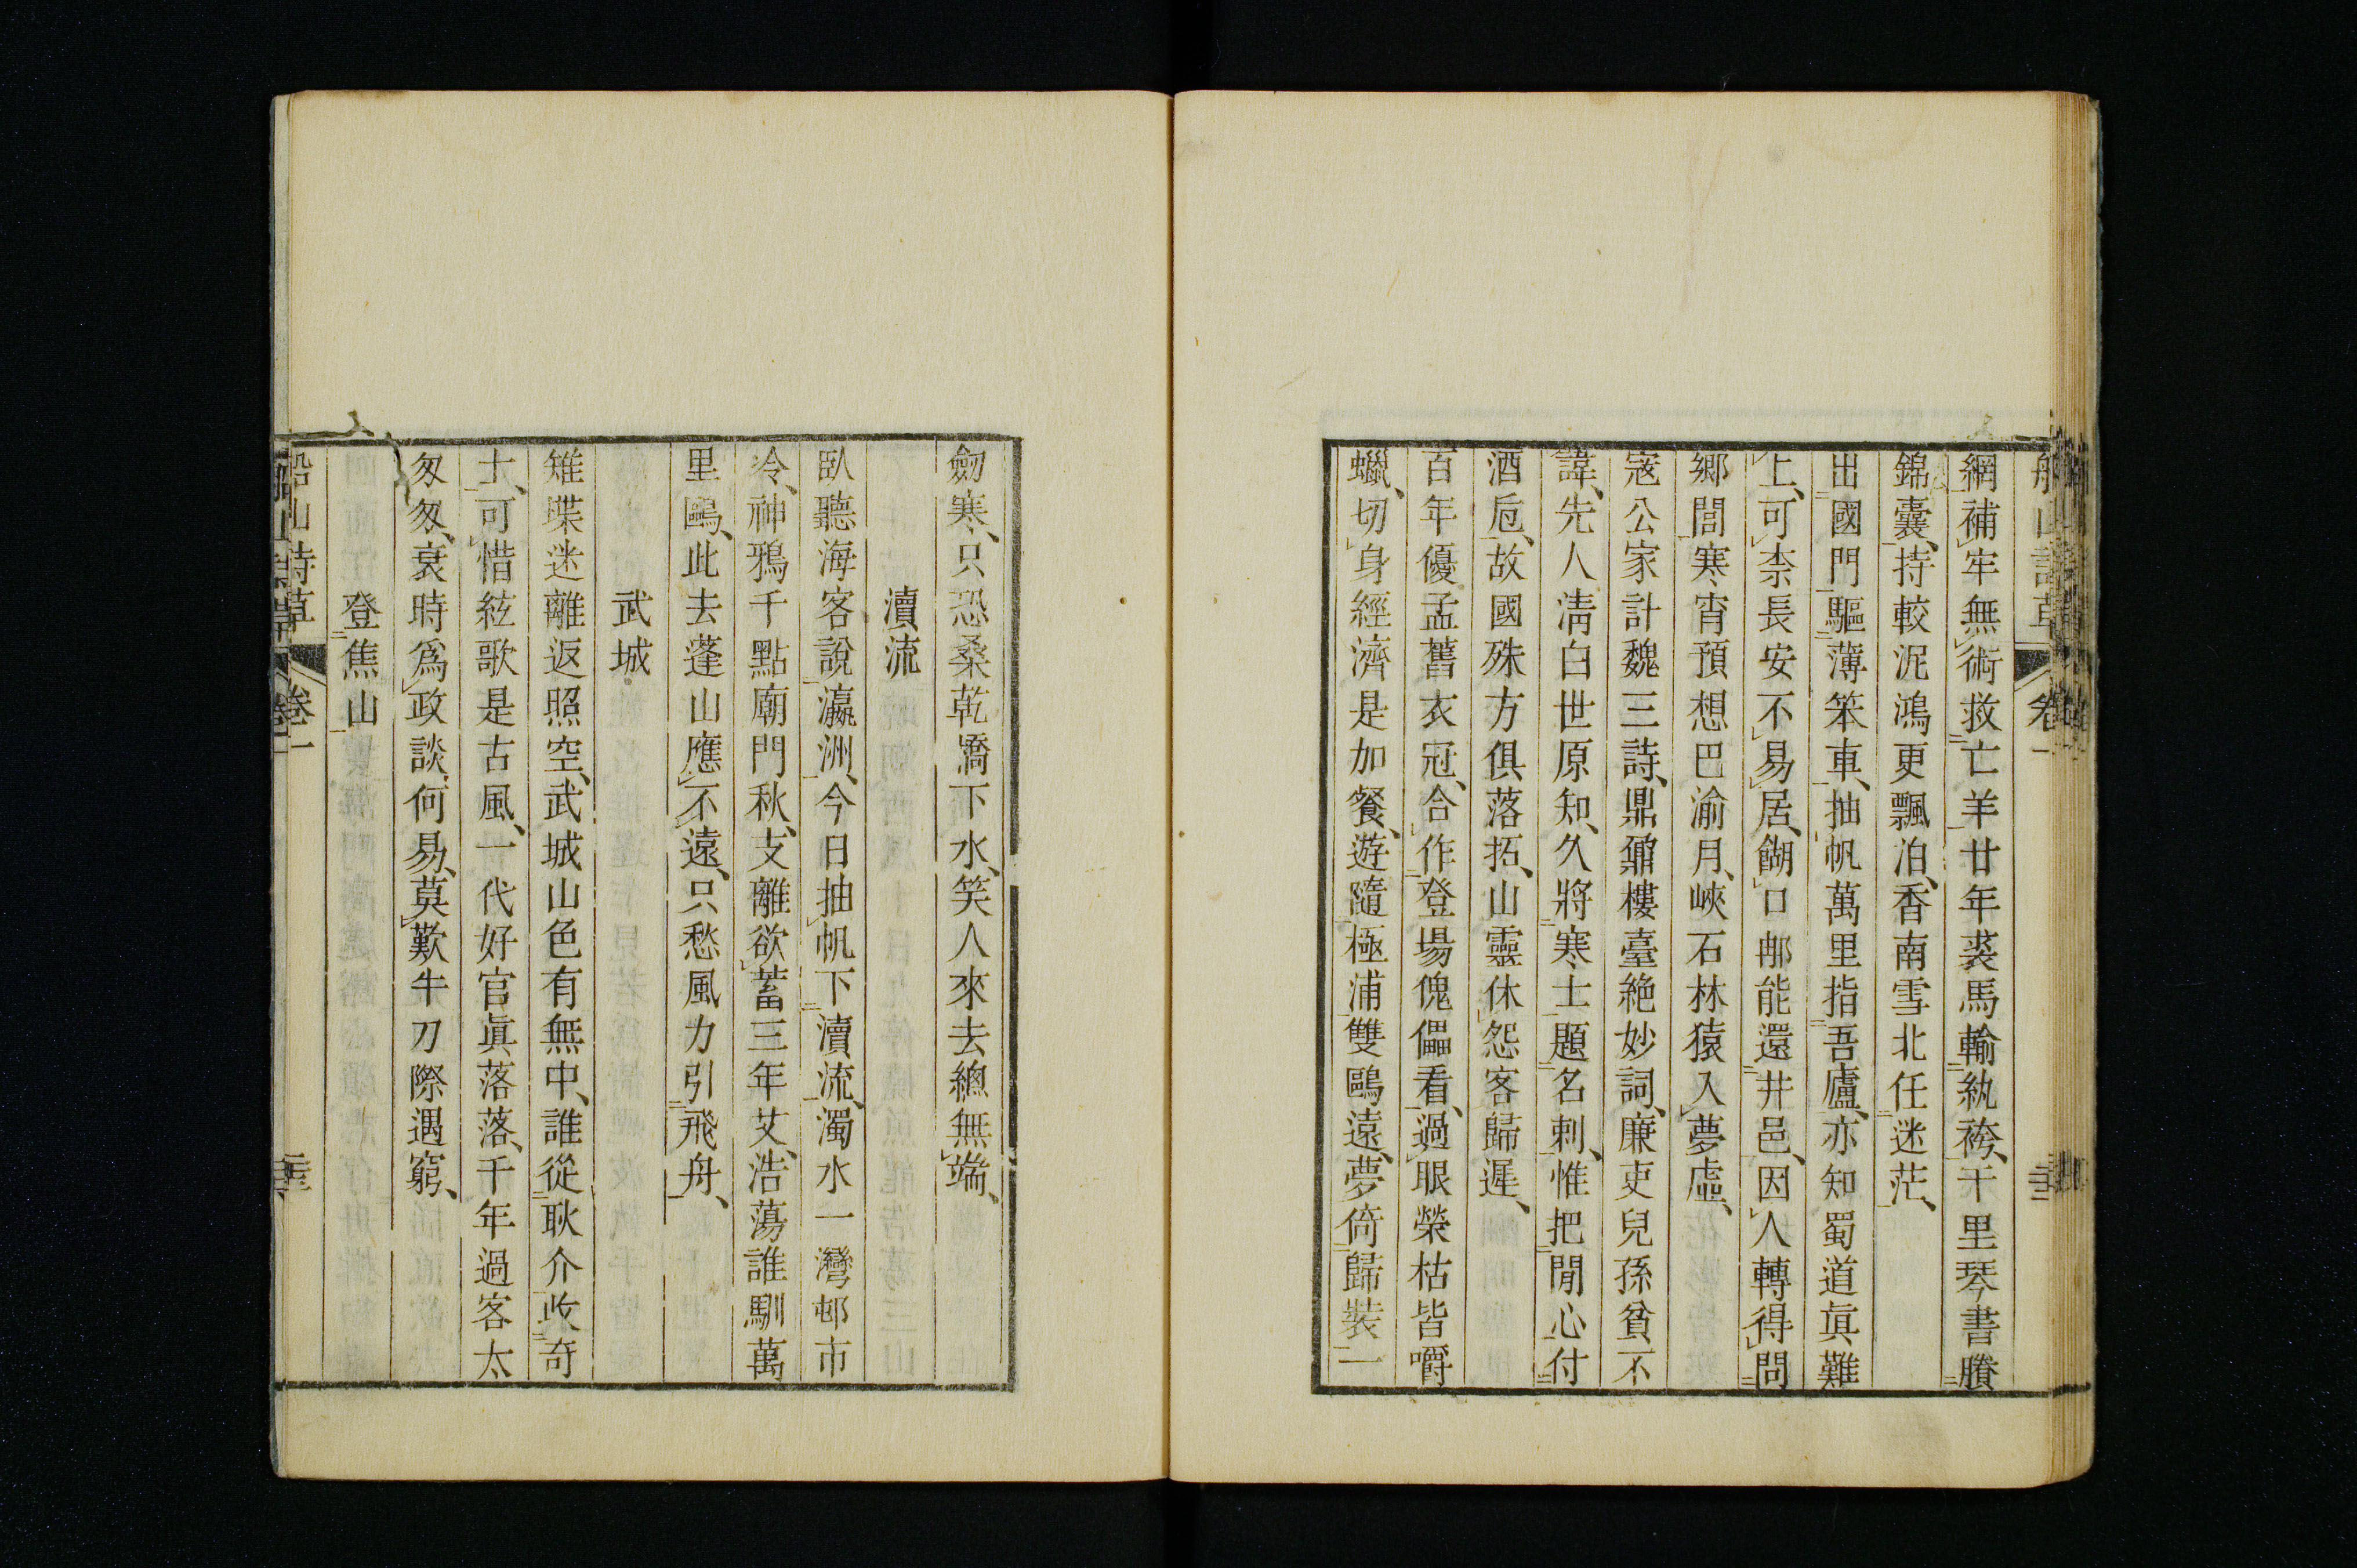 船山詩草 卷一 二十二
網補牢無術救亡羊廿年裘馬輸紈袴、千里琴書賸
錦囊、持較泥鴻更飄泊、香南雪北任迷茫、
出國門驅薄笨車、抽帆萬里指吾廬、亦知蜀道眞難
上、可柰長安不易居、餬口那能還井邑、因人轉得問
鄉閭寒宵預想巴渝月、峽石林猿入夢虛、
寇公家計魏三詩、鼎鼐樓臺絶妙詞、廉吏兒孫貧不
諱、先人淸白世原知、久將寒士題名刺、惟把閒心付
酒卮、故國殊方俱落拓、山靈休怨客歸遲、
百年優孟舊衣冠、合作登場傀儡看、過眼榮枯皆嚼
蠟、切身經濟是加餐、遊隨極浦雙鷗遠、夢倚歸裝一
劒寒、只恐桑乾橋下水、笑人來去總無端、
瀆流
臥聽海客說瀛洲、今日抽帆下瀆流、濁水一灣邨市
冷、神鴉千點廟門秋、支離欲蓄三年艾、浩蕩誰馴萬
里鷗、此去蓬山應不遠、只愁風力引飛舟、
武城
雉堞迷離返照空、武城山色有無中、誰從耿介收奇
士、可惜絃歌是古風、一代好官眞落落、千年過客太
匆匆、衰時爲政談何易、莫歎牛刀際遇窮、
登焦山
船山詩草 卷一